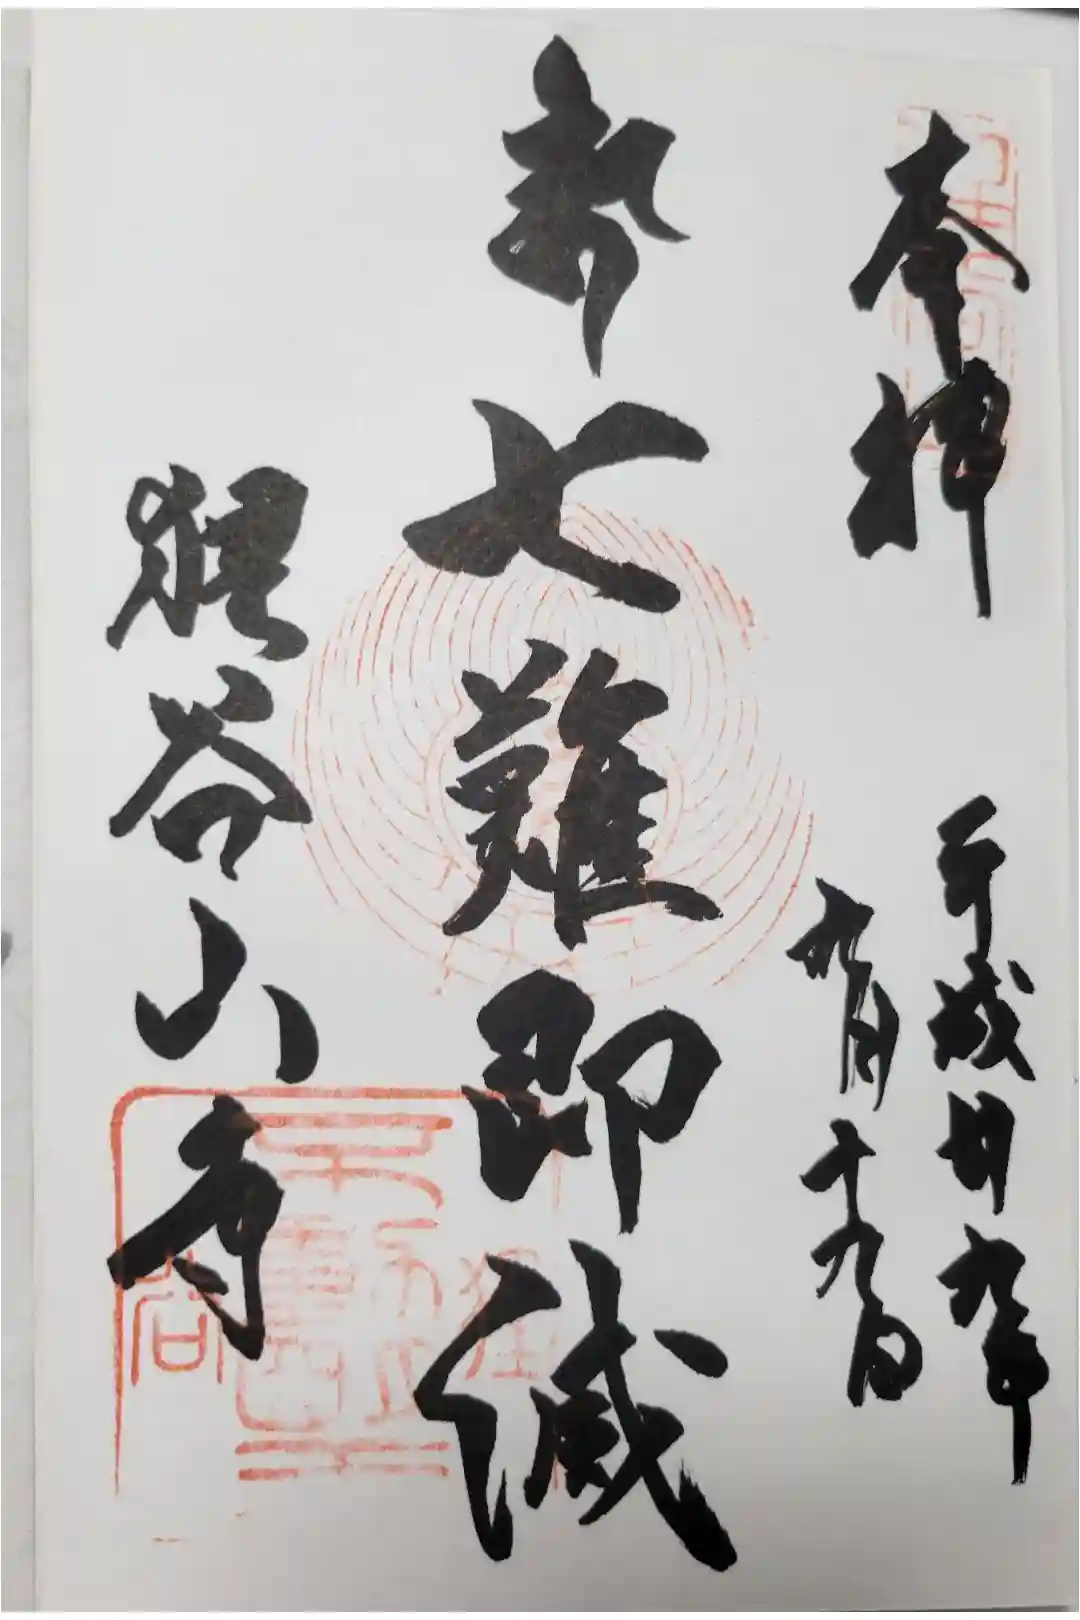 奉拝
平成廿九年
九月十九日
七難即滅
狸谷山寺